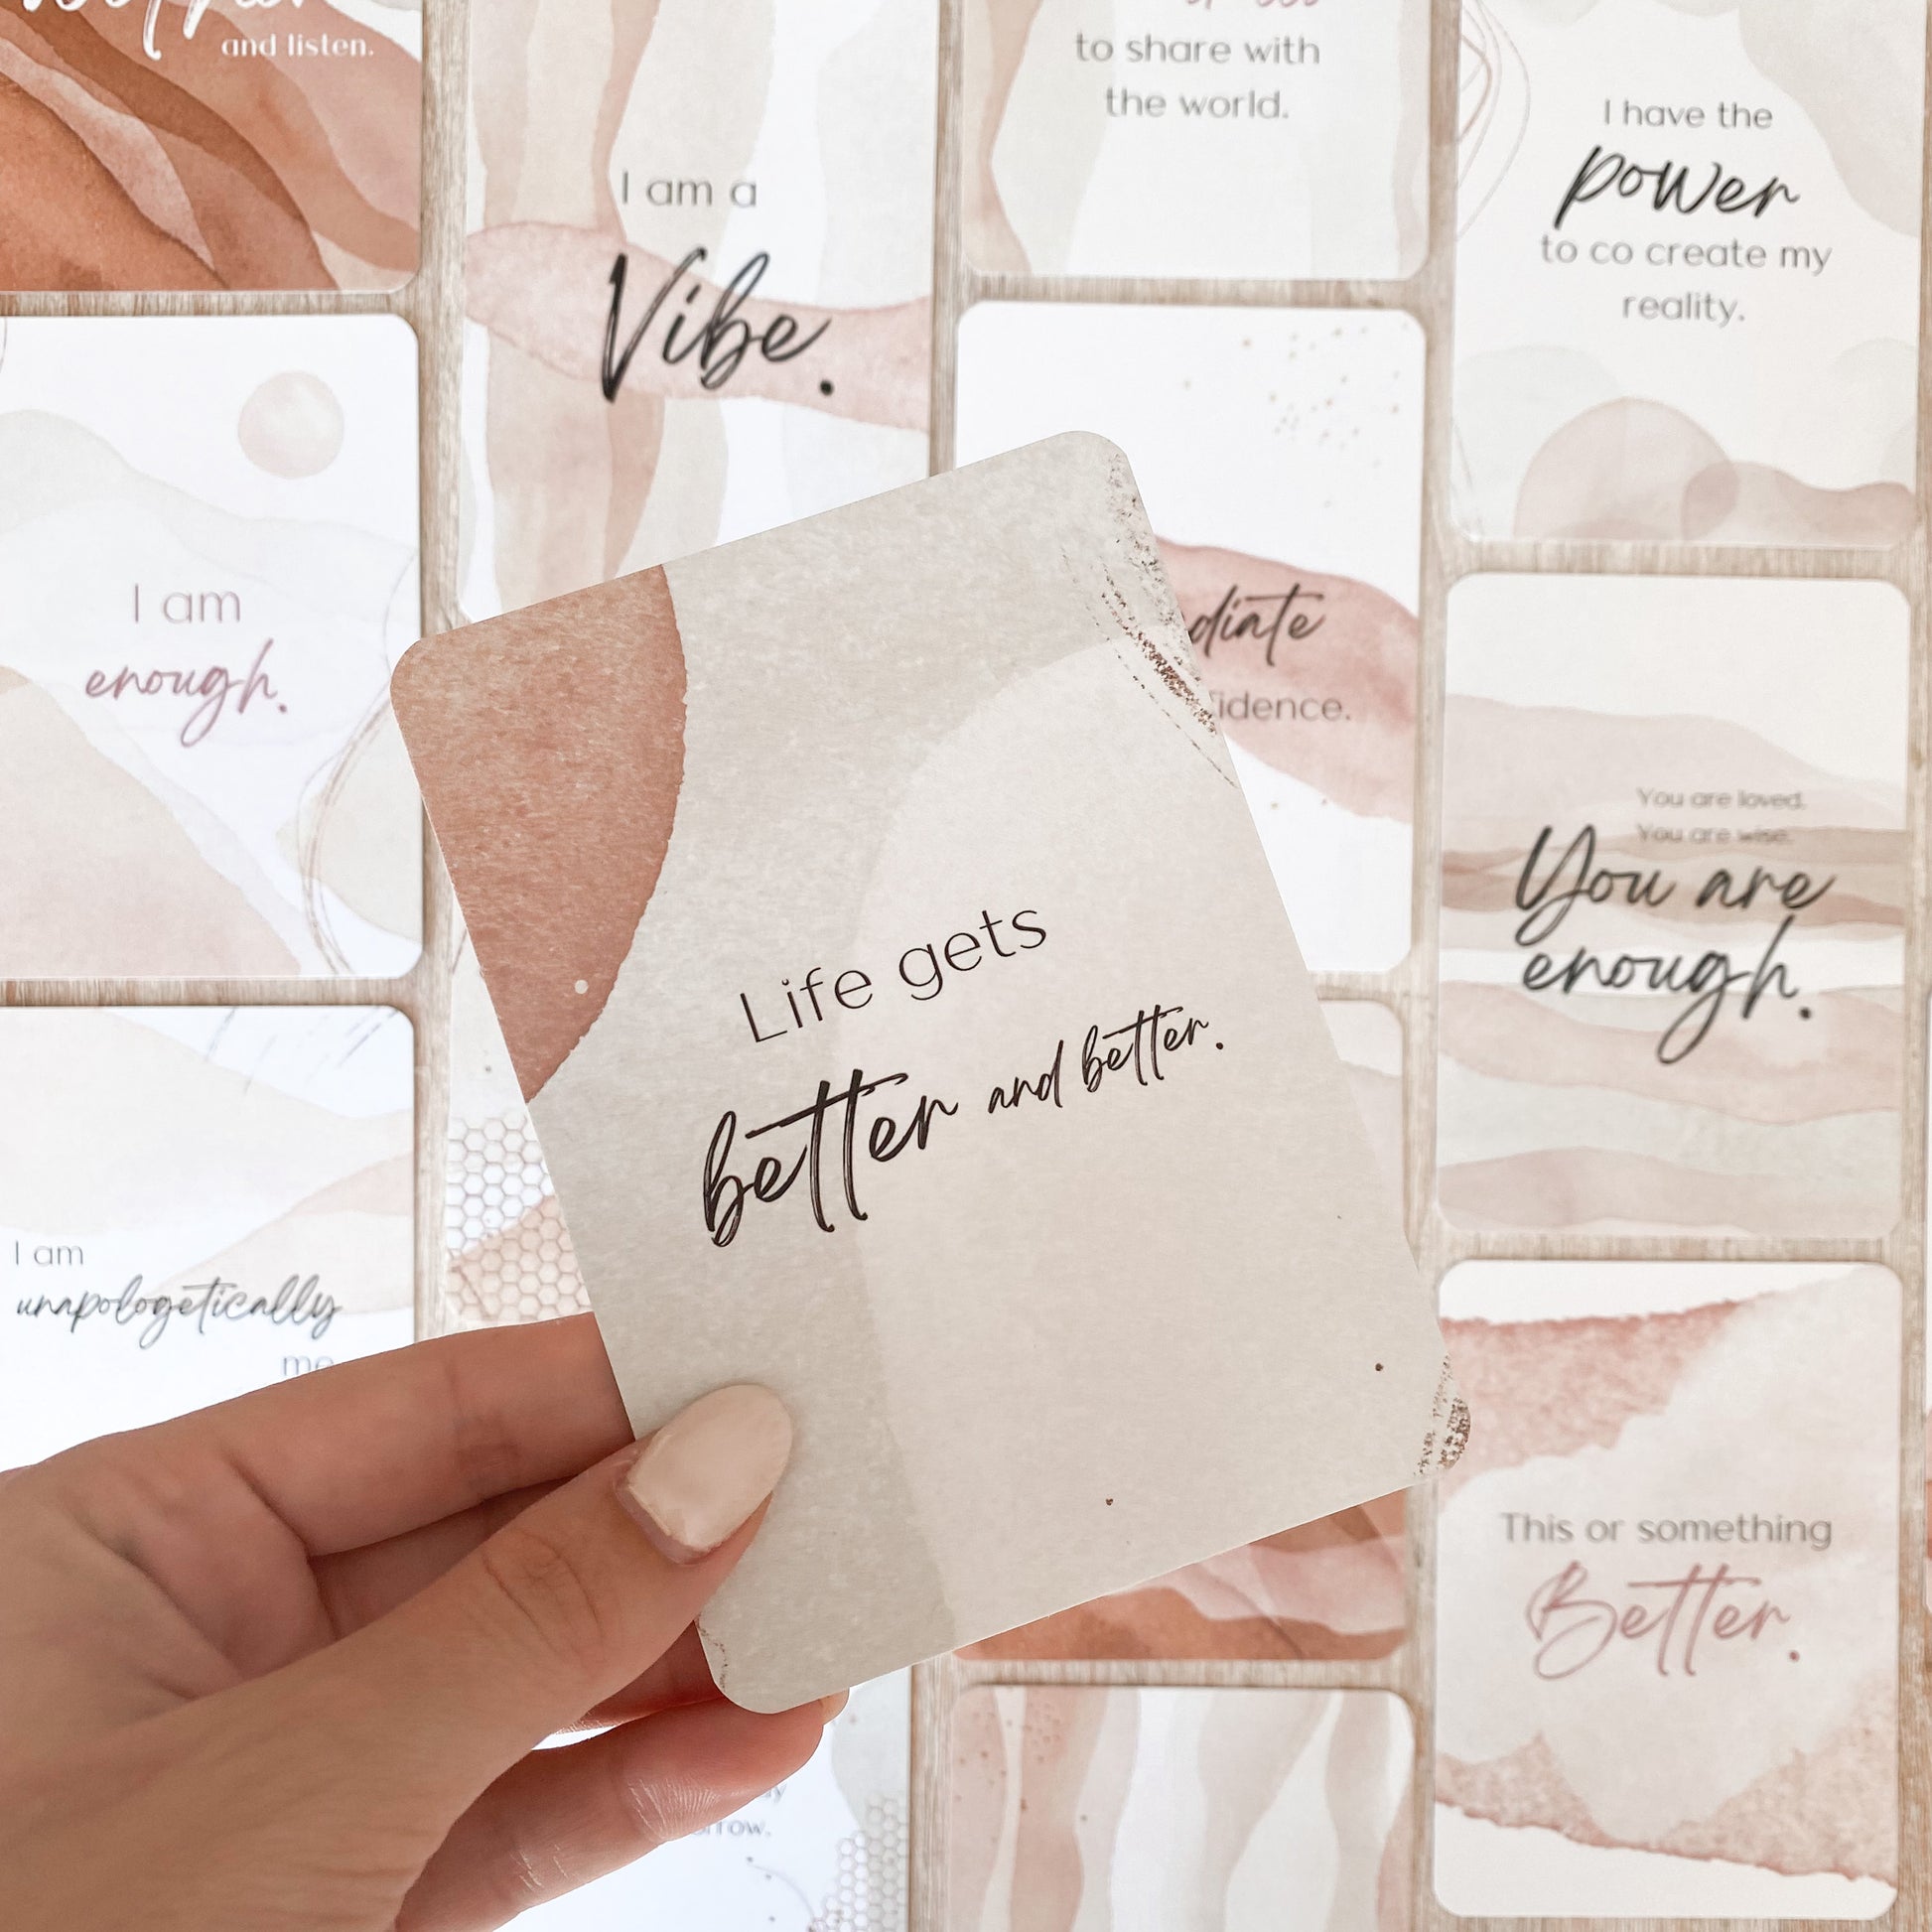 and listen.
I am a
Vibe.
to share with
the world.
I have the
power
to co create my
reality.
I am
enough.
Life gets
better and better.
You are loved.
You are wise.
You are
enough.
I am
unapologetically
me
This or something
Better.